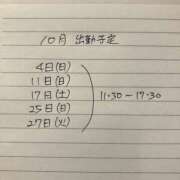 10月 出勤予定
4日(日)
11日(日)
17日(土)
25日(日)
27日(火)
11.30 - 17.30